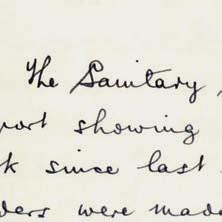 The Sanitary
port showing
k since last
ders were made